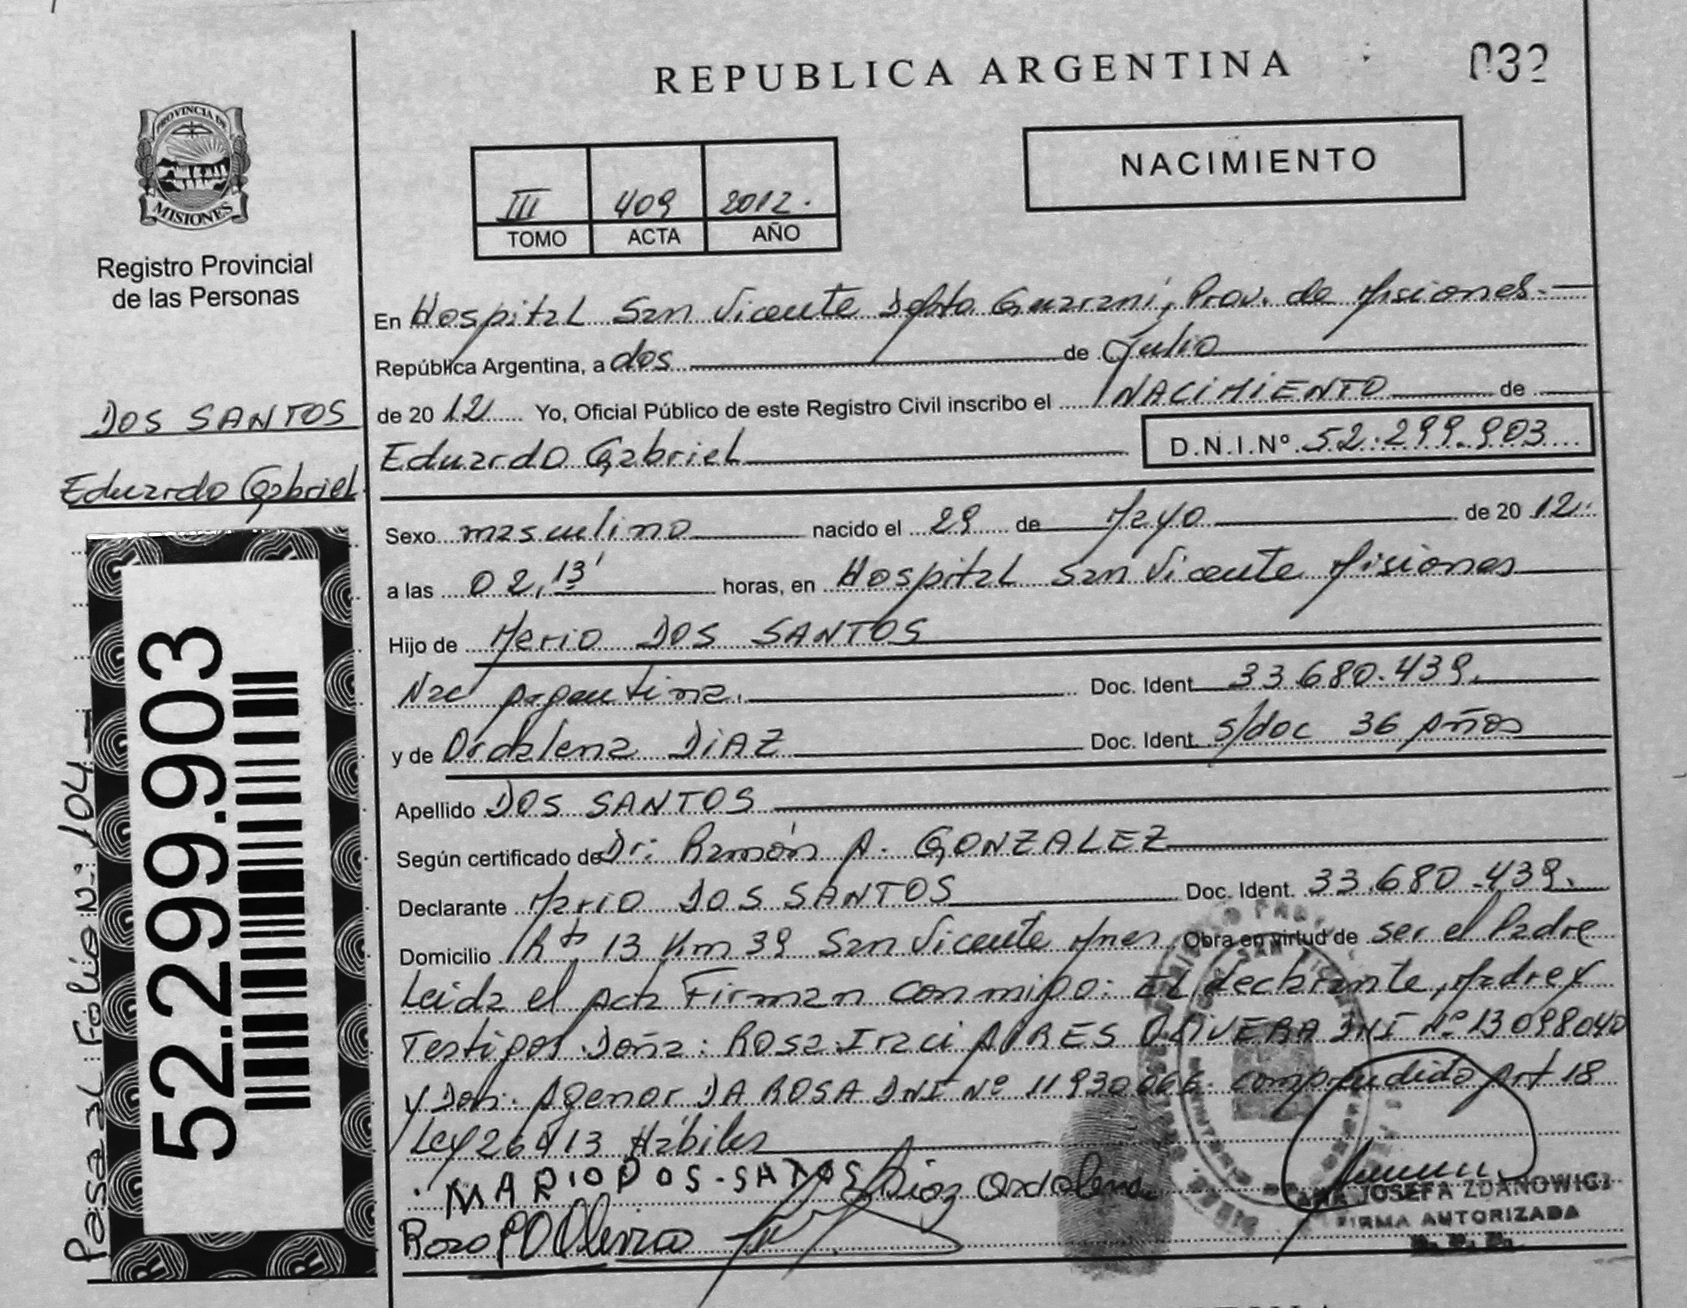 REPUBLICA ARGENTINA
032
PROVINCIA DE
MISIONES
Registro Provincial
de las Personas
III 409 2012.
TOMO ACTA AÑO
NACIMIENTO
En Hospital San Vicente Dpto Guaraní, Prov. de Misiones.
República Argentina, a dos de Julio
de 20 12 Yo, Oficial Público de este Registro Civil inscribo el NACIMIENTO de
Eduardo Gabriel D.N.I.Nº 52.299.903
DOS SANTOS
Eduardo Gabriel
Sexo masculino nacido el 29 de Mayo de 20 12.
a las 02,13' horas, en Hospital San Vicente Misiones
Hijo de Merio DOS SANTOS
Nac argentina. Doc. Ident 33.680.439.
y de Ordalena DIAZ Doc. Ident. s/doc 36 Años
Apellido DOS SANTOS
Según certificado de Dr: Ramón A. GONZALEZ
Declarante Mario DOS SANTOS Doc. Ident. 33.680.439.
Domicilio Rta 13 Km 39 San Vicente Mnes Obra en virtud de ser el Padre
Leida el acta Firman conmigo: El declarante, Madre y
Testigos Doña: Rosa Iraci PIRES OLIVERA DNI Nº 13098040
y Don: Agenor DA ROSA DNI Nº 11930066. comprendido Art 18
Ley 26413 Hábiles
MARIO DOS-SATOS Diaz Ordalena
Rosa P D Olivera
ANA JOSEFA ZDANOWICZ
FIRMA AUTORIZADA
R. P. P.
52.299.903
Pasa al Folio Nº: 104